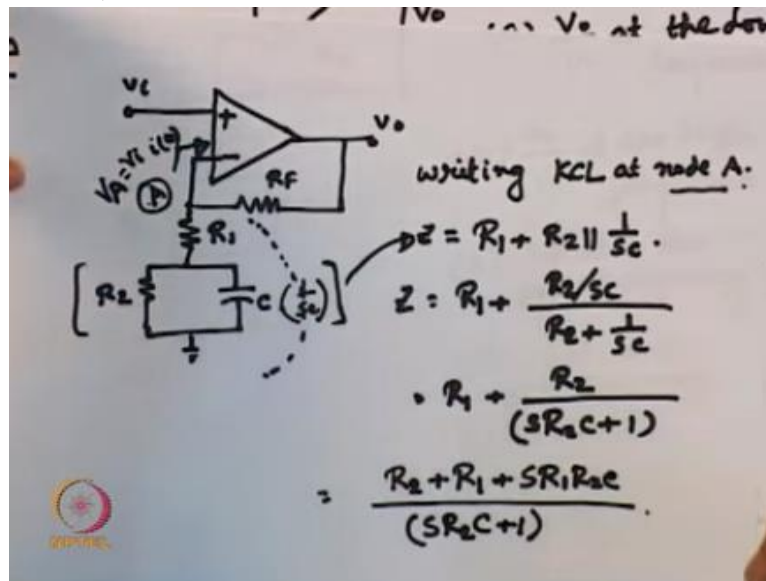 Vo at the
Vi
+
-
Vo
VA = Vi
A
RF
R1
R2
C (1/sc)
writing KCL at node A.
Z = R1 + R2 || 1/sc.
Z = R1 + (R2/sc)/(R2 + 1/sc)
= R1 + R2/(SR2C+1)
= (R2 + R1 + SR1R2C)/(SR2C+1).
NPTEL